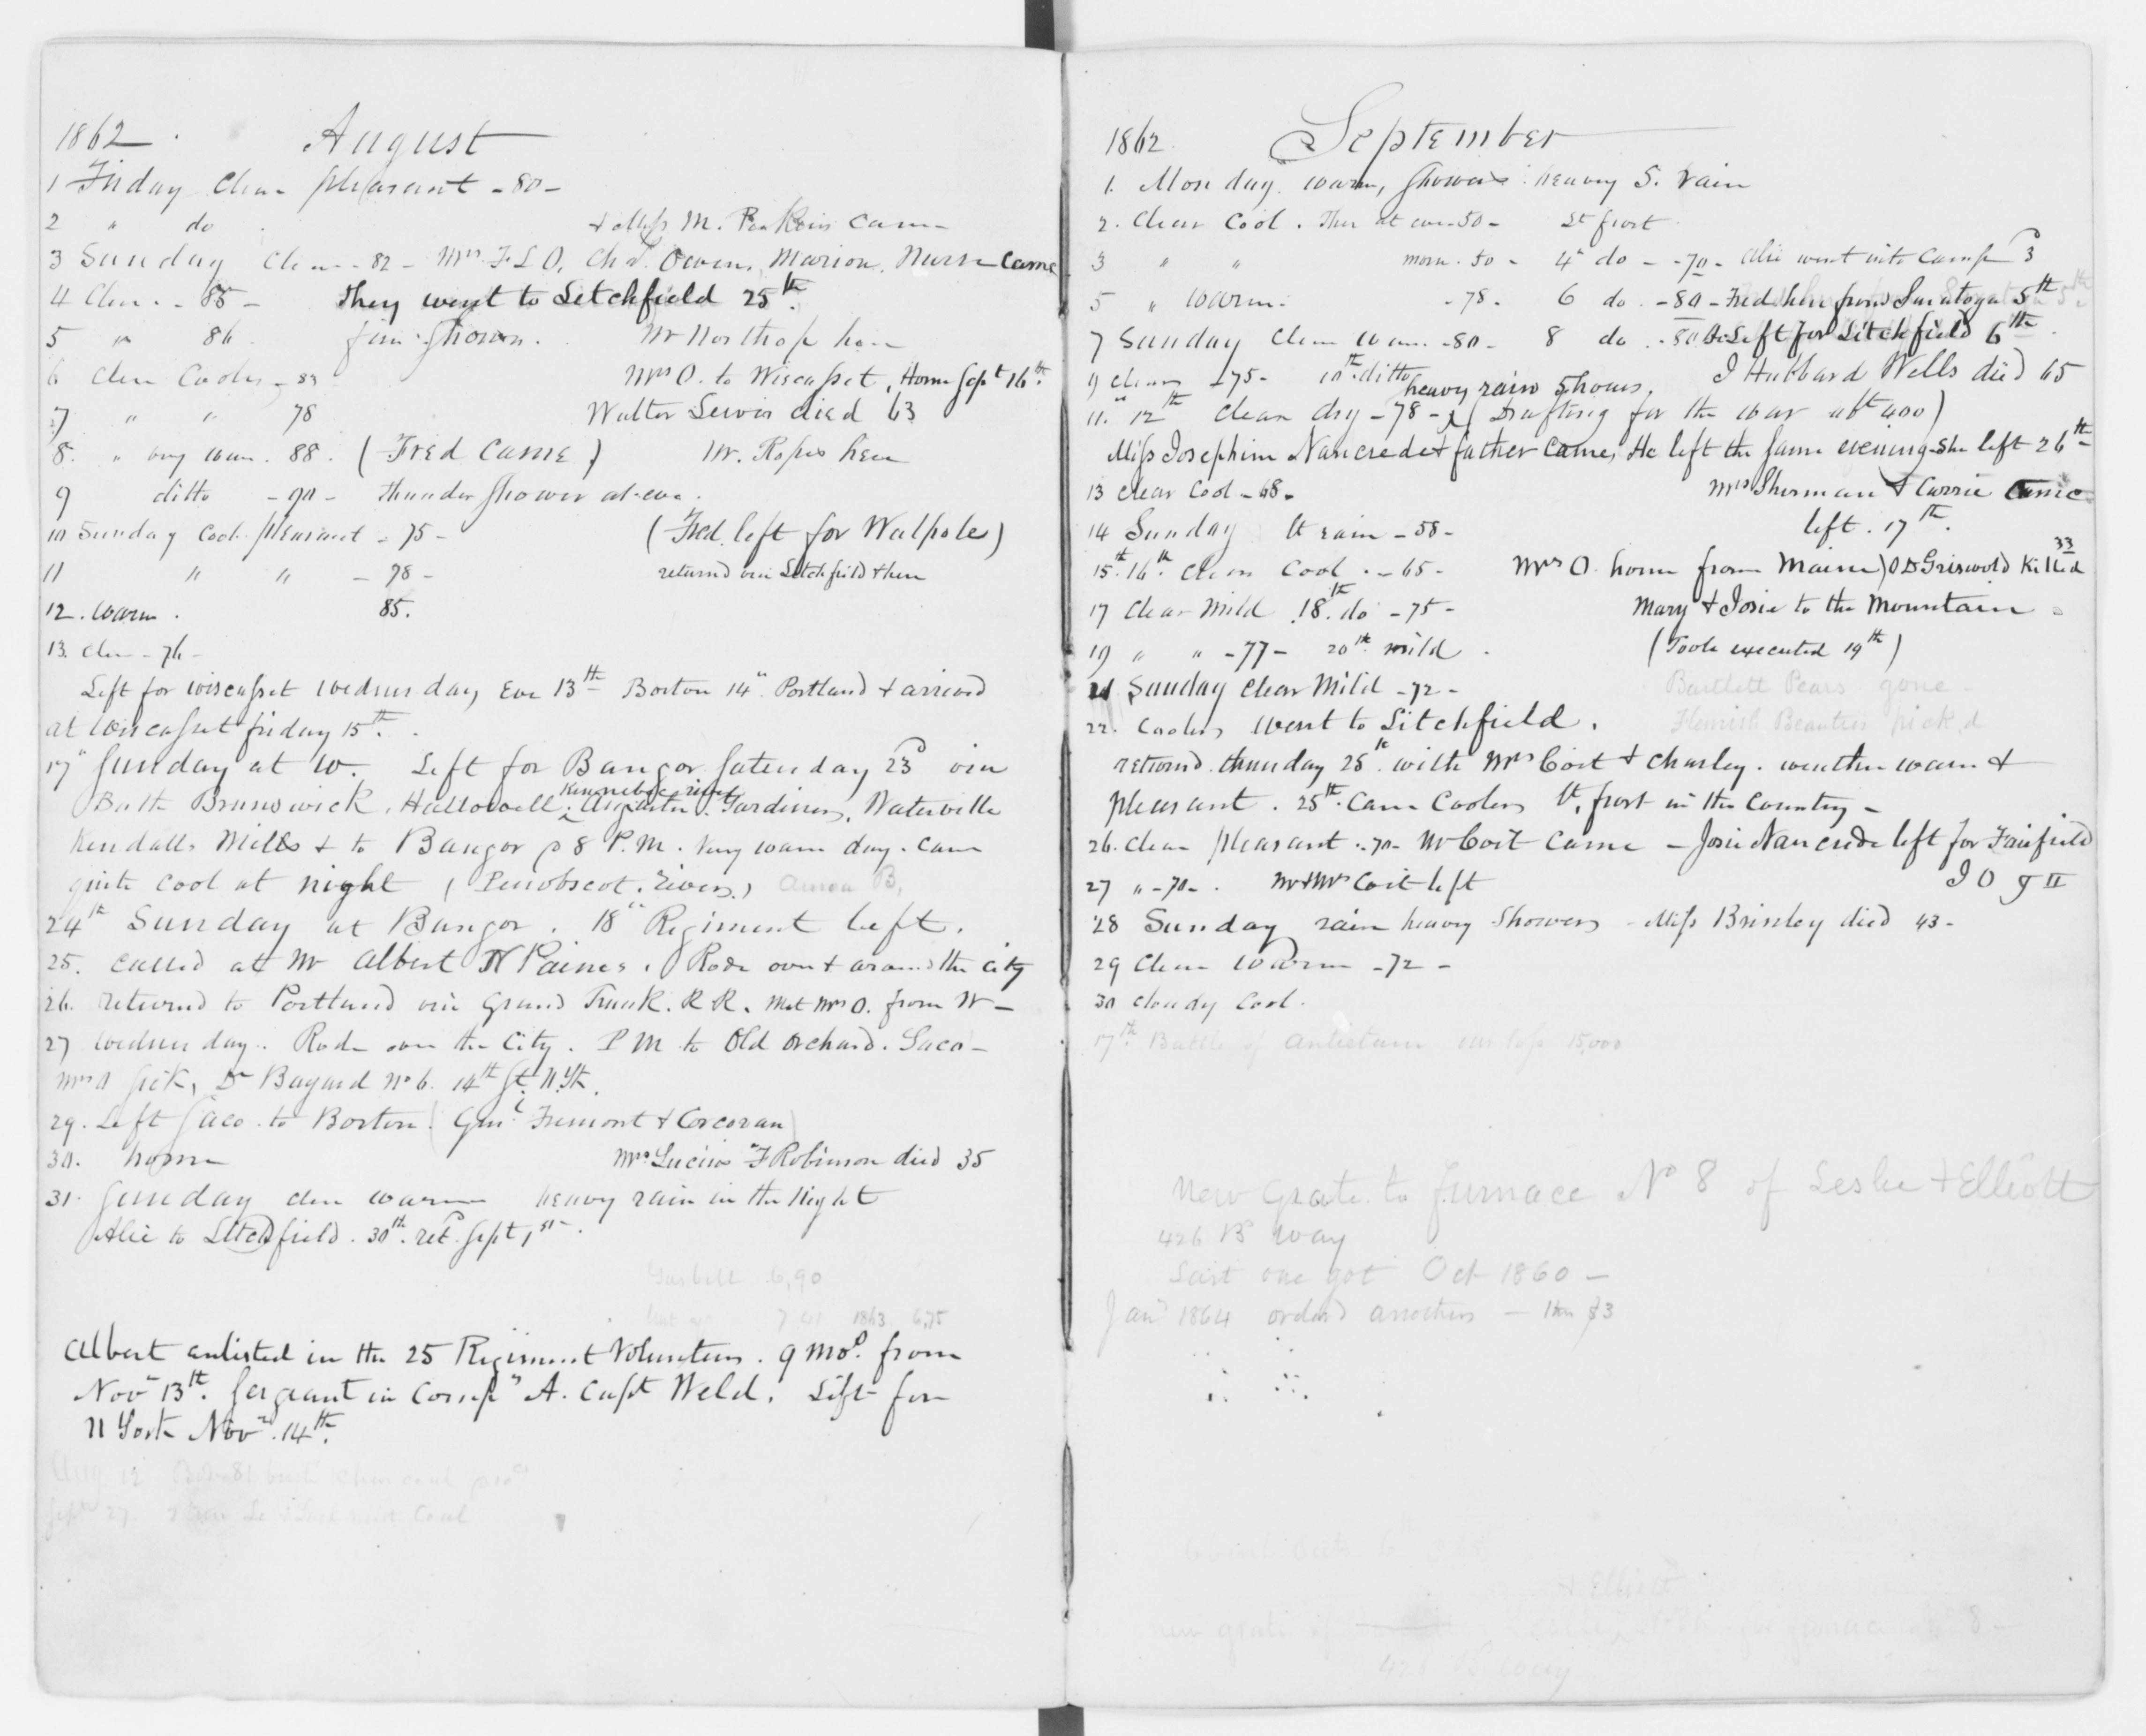 1862. August
1 Friday Clear pleasant - 80 -
2 " do & Miss M. Perkins came
3 Sunday Clear - 82 - Mrs F L O, Owen, Marion, Nurse came
4 Clear - 85 - They went to Litchfield 25th
5 " 86 fine shower. Mr Northrop here
6 Clear Cooler - 83 Mrs O. to Wiscasset, Home Sept 16th
7 " " 78 Walter died 63
8. " very warm. 88. (Fred came) Mr. Ropes here
9 ditto - 90 - thunder shower at eve.
10 Sunday Cool pleasant - 75 - (Fred left for Walpole)
11 " " - 78 - returned via Litchfield then
12. Warm. 85.
13. Clear - 76 -
Left for Wiscasset Wednesday Eve 13th Boston 14" Portland & arrived
at Wiscasset friday 15th.
17" Sunday at W. Left for Bangor Saturday 23d via
Kennebec river
Bath Brunswick, Hallowell, Augusta. Gardiner, Waterville
Kendalls Mills & to Bangor 8 P.M. Very warm day. Came
quite cool at night (Penobscot. river.)
24th Sunday at Bangor. 18" Regiment left.
25. Called at Mr Albert Paines. Rode over & around the City
26. returned to Portland via Grand Trunk. R R. Met Mrs O. from W -
27 Wednesday. Rode over the City. P M to Old Orchard. Saco -
Mrs O sick, Dr Bayard No 6. 14th St. N. Yk.
29. Left Saco to Boston (Genl Fremont & Corcoran)
30. home Mrs Lucius F Robinson died 35
31. Sunday clear warm heavy rain in the Night
Alie to Litchfield. 30th. retd Sept, 1st -
Gas bill 6,90
1863 6,75
Albert enlisted in the 25 Regiment Volunteers. 9 mos. from
Nov 13th. Sergeant in Compy A. Capt Weld. Left for
N York Novr. 14th.
1862 September
1. Monday. warm, Showers heavy S. rain
2. Clear Cool. Ther at eve 50 - Lt frost
3 " " morn. 50 - 4" do - 70 - Alie went into Camp 3d
5 " Warm - 78. 6 do. - 80 - Fred here from Saratoga 5th
7 Sunday Clear warm - 80 - 8 do. - 80 Left for Litchfield 6th
9 Clear - 75 - 10th ditto heavy rain Shower. J Hubbard Wells died 65
11. " 12th Clear dry - 78 - (Drafting for the war abt 400)
Miss Josephine Nancrede & father Came, He left the same evening - She left 26th
13 Clear Cool - 68. Mrs Sherman & Carrie Came
14 Sunday Lt rain - 58 - left. 17th.
15th. 16th. Clear Cool. - 65 - Mrs O home from Maine) O D Griswold Killed 33
17 Clear Mild 18th. do - 75 - Mary & Josie to the Mountain
19 " " - 77 - 20th mild (Toole executed 19th)
21 Sunday Clear Mild - 72 - Bartlett Pears gone -
22. Cooler, Went to Litchfield. Flemish Beauties pick,d
returnd thursday 25th with Mrs Coit & Charley. weather warm &
pleasant. 25th. Came Cooler Lt, frost in the Country -
26. Clear pleasant - 70 - Mr Coit Came - Josie Nancrede left for Fairfield
27 " - 70 -. Mr & Mrs Coit left
28 Sunday rain heavy Showers - Miss Brinley died 43 -
29 Clear Warm - 72 -
30 cloudy Cool.
17th. Battle of Antietam our loss 15,000
New Grate to furnace No 8 of Leslie & Elliott
426 Bd Way
Last one got Oct 1860 -
Jany 1864 orderd another - $3
& Elliott
new grate of